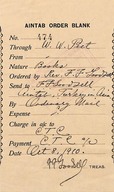 AINTAB ORDER BLANK
No. 474
Through W. W. Peet
From "
Nature Books
Ordered by Rev. F. F. Goodsell
Send to F. F. Goodsell
Aintab, Turkey in Asia
By Ordinary Mail
Expense
Charge in a/c to
C.T.C.
Payment C.T.C. a/c
Date Oct 8, 1910.
F. F. Goodsell
TREAS.